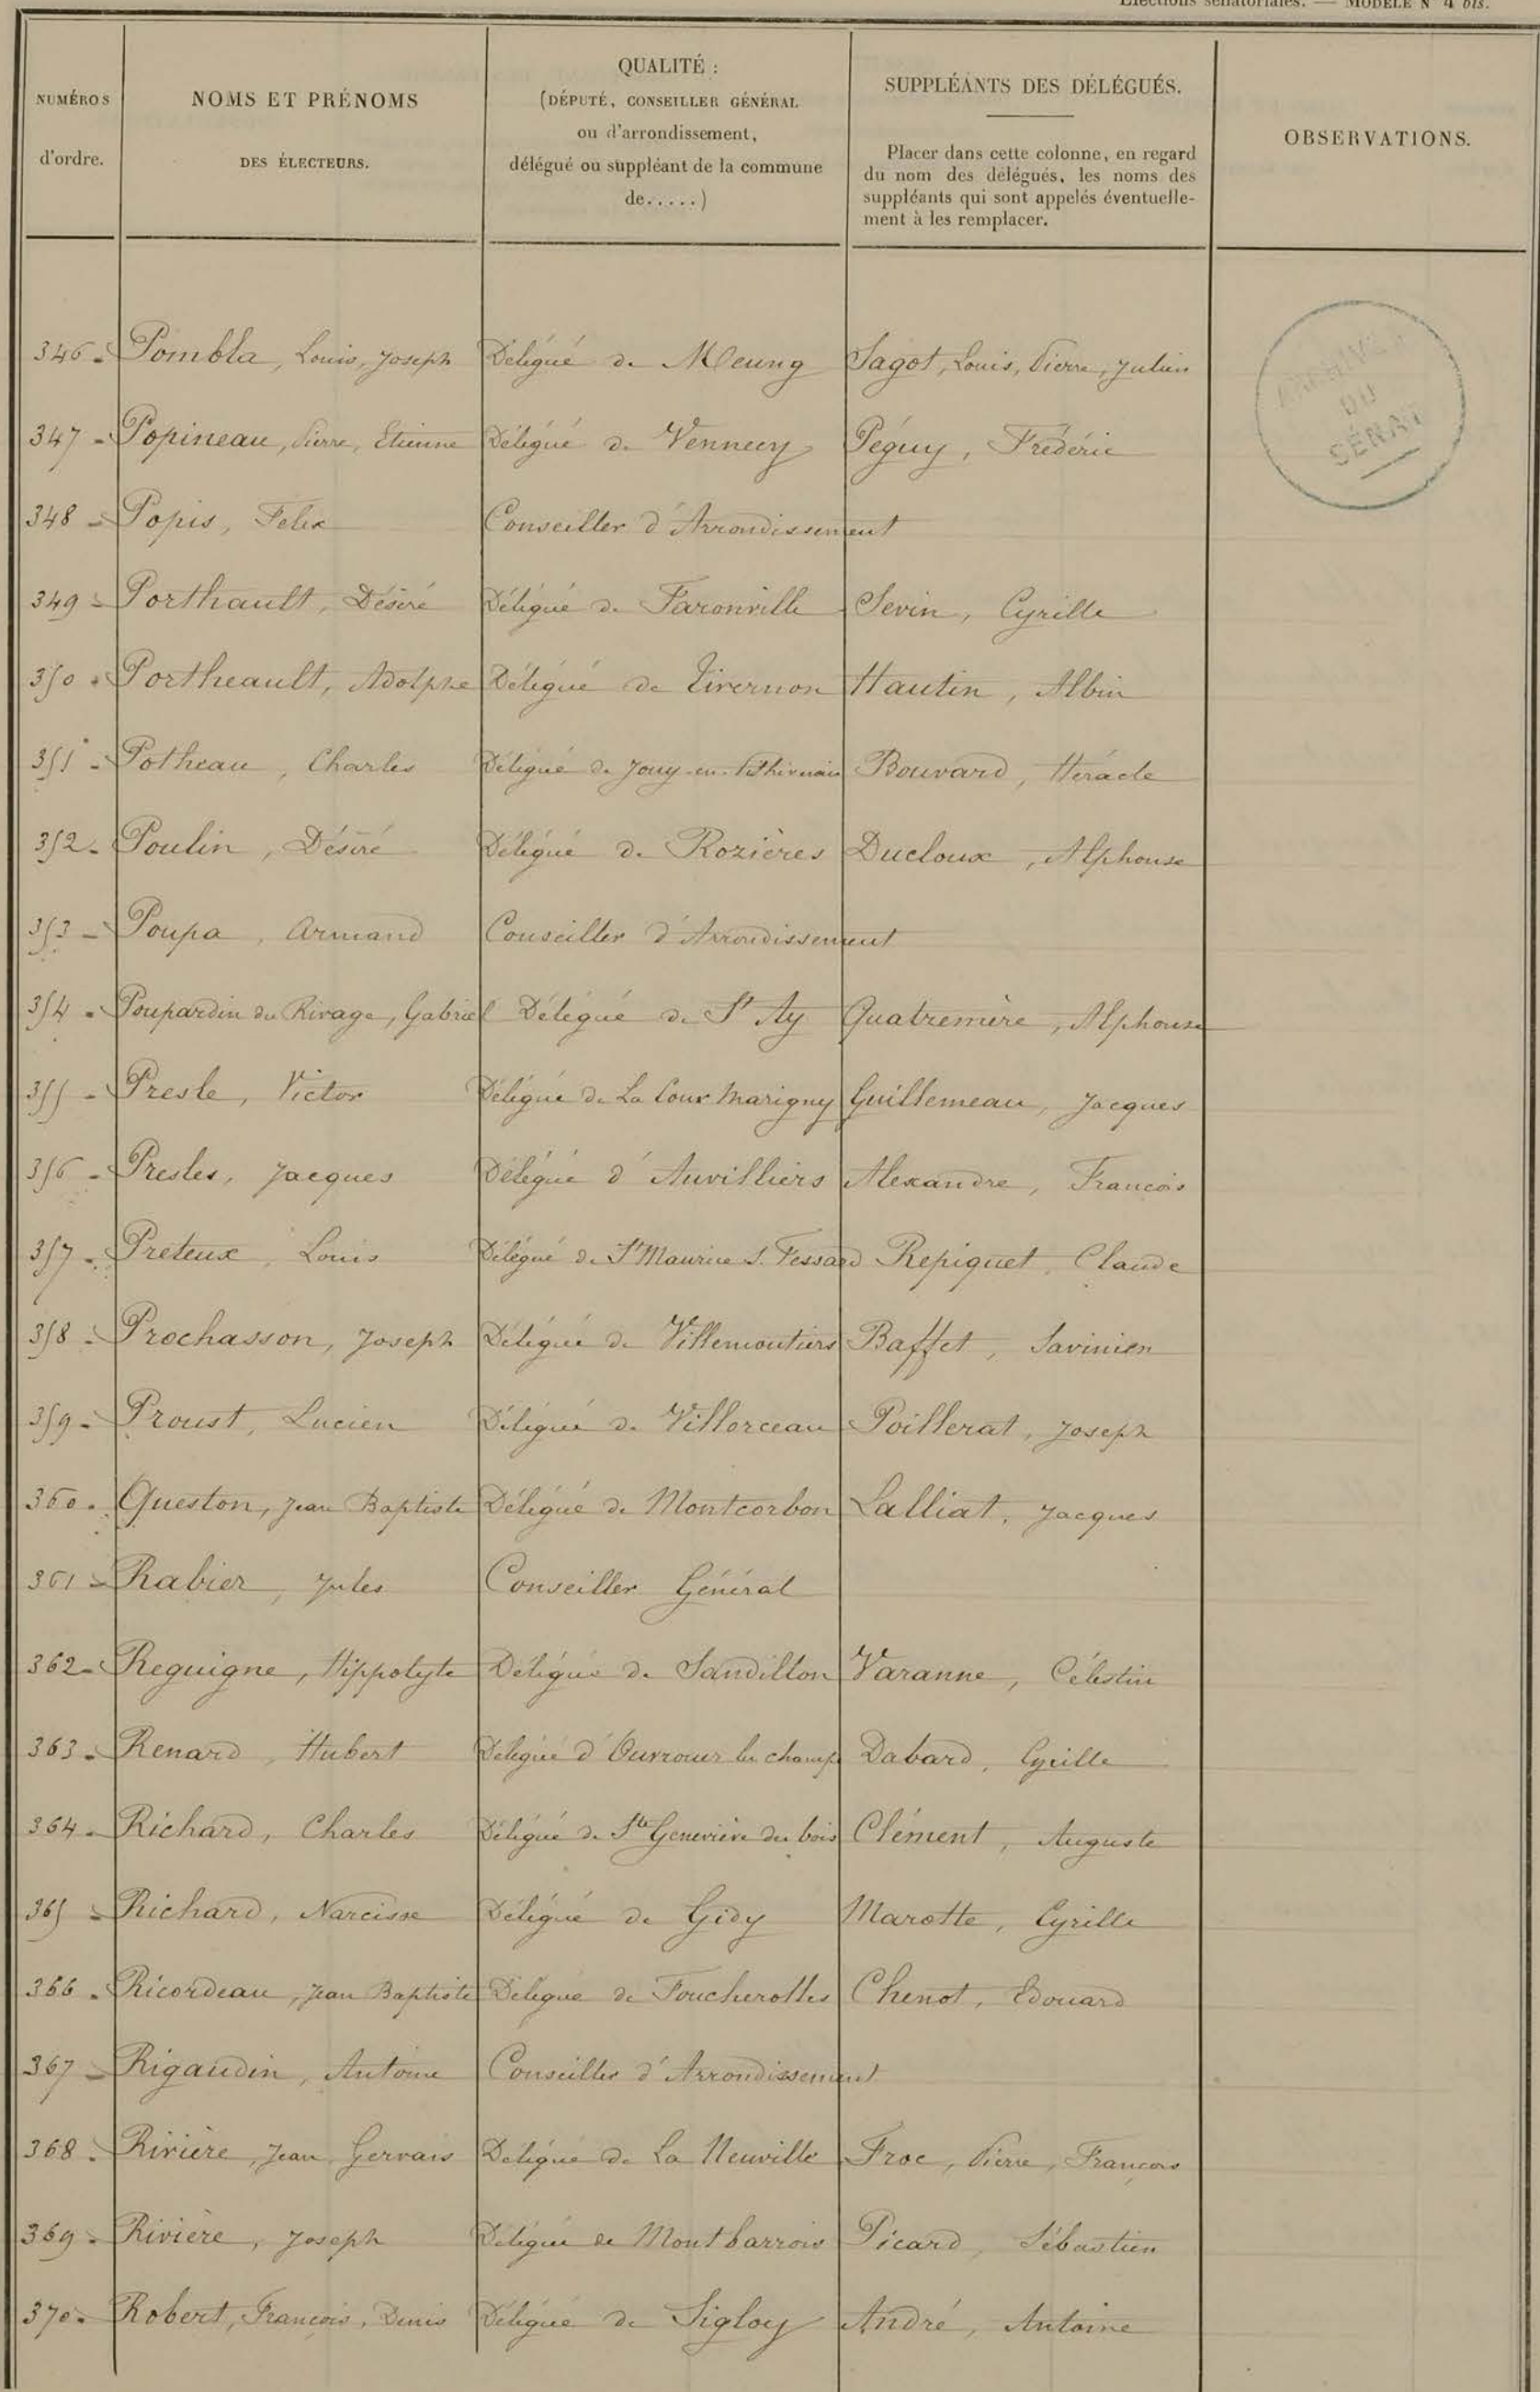 Elections sénatoriales. — MODÈLE N° 4 bis.
NUMÉROS
d'ordre.
NOMS ET PRÉNOMS
DES ÉLECTEURS.
QUALITÉ :
(DÉPUTÉ, CONSEILLER GÉNÉRAL
ou d'arrondissement,
délégué ou suppléant de la commune
de.....)
SUPPLÉANTS DES DÉLÉGUÉS.
Placer dans cette colonne, en regard
du nom des délégués, les noms des
suppléants qui sont appelés éventuelle-
ment à les remplacer.
OBSERVATIONS.
ARCHIVES
DU
SÉNAT
346 - Pombla, Louis, Joseph Délégué de Meung Sagot, Louis, Pierre, Julien
347 - Popineau, Pierre, Etienne Délégué de Vennecy Péguy, Frédéric
348 - Popis, Felix Conseiller d'Arrondissement
349 - Porthault, Désiré Délégué de Faronville Sevin, Cyrille
350 - Portheault, Adolphe Délégué de Tivernon Hautin, Albin
351 - Potheau, Charles Délégué de Jouy-en-Pithiverais Bouvard, Héracle
352 - Poulin, Désiré Délégué de Rozières Ducloux, Alphonse
353 - Poupa, Armand Conseiller d'Arrondissement
354 - Poupardin du Rivage, Gabriel Délégué de St Ay Quatremère, Alphonse
355 - Presle, Victor Délégué de La Cour Marigny Guillemeau, Jacques
356 - Presles, Jacques Délégué d'Auvilliers Alexandre, François
357 - Preteux, Louis Délégué de St Maurice s. Fessard Repiquet, Claude
358 - Prochasson, Joseph Délégué de Villemoutiers Baffet, Savinien
359 - Proust, Lucien Délégué de Villorceau Poillerat, Joseph
360 - Queston, Jean Baptiste Délégué de Montcorbon Lalliat, Jacques
361 - Rabier, Jules Conseiller Général
362 - Reguigne, Hippolyte Délégué de Sandillon Varanne, Célestin
363 - Renard, Hubert Délégué d'Ouvrouer les champs Dabard, Cyrille
364 - Richard, Charles Délégué de Ste Geneviève des bois Clément, Auguste
365 - Richard, Narcisse Délégué de Gidy Marotte, Cyrille
366 - Ricordeau, Jean Baptiste Délégué de Foucherolles Chenot, Edouard
367 - Rigaudin, Antoine Conseiller d'Arrondissement
368 - Rivière, Jean Gervais Délégué de La Neuville Froc, Pierre, François
369 - Rivière, Joseph Délégué de Montbarrois Picard, Sébastien
370 - Robert, François, Denis Délégué de Sigloy André, Antoine